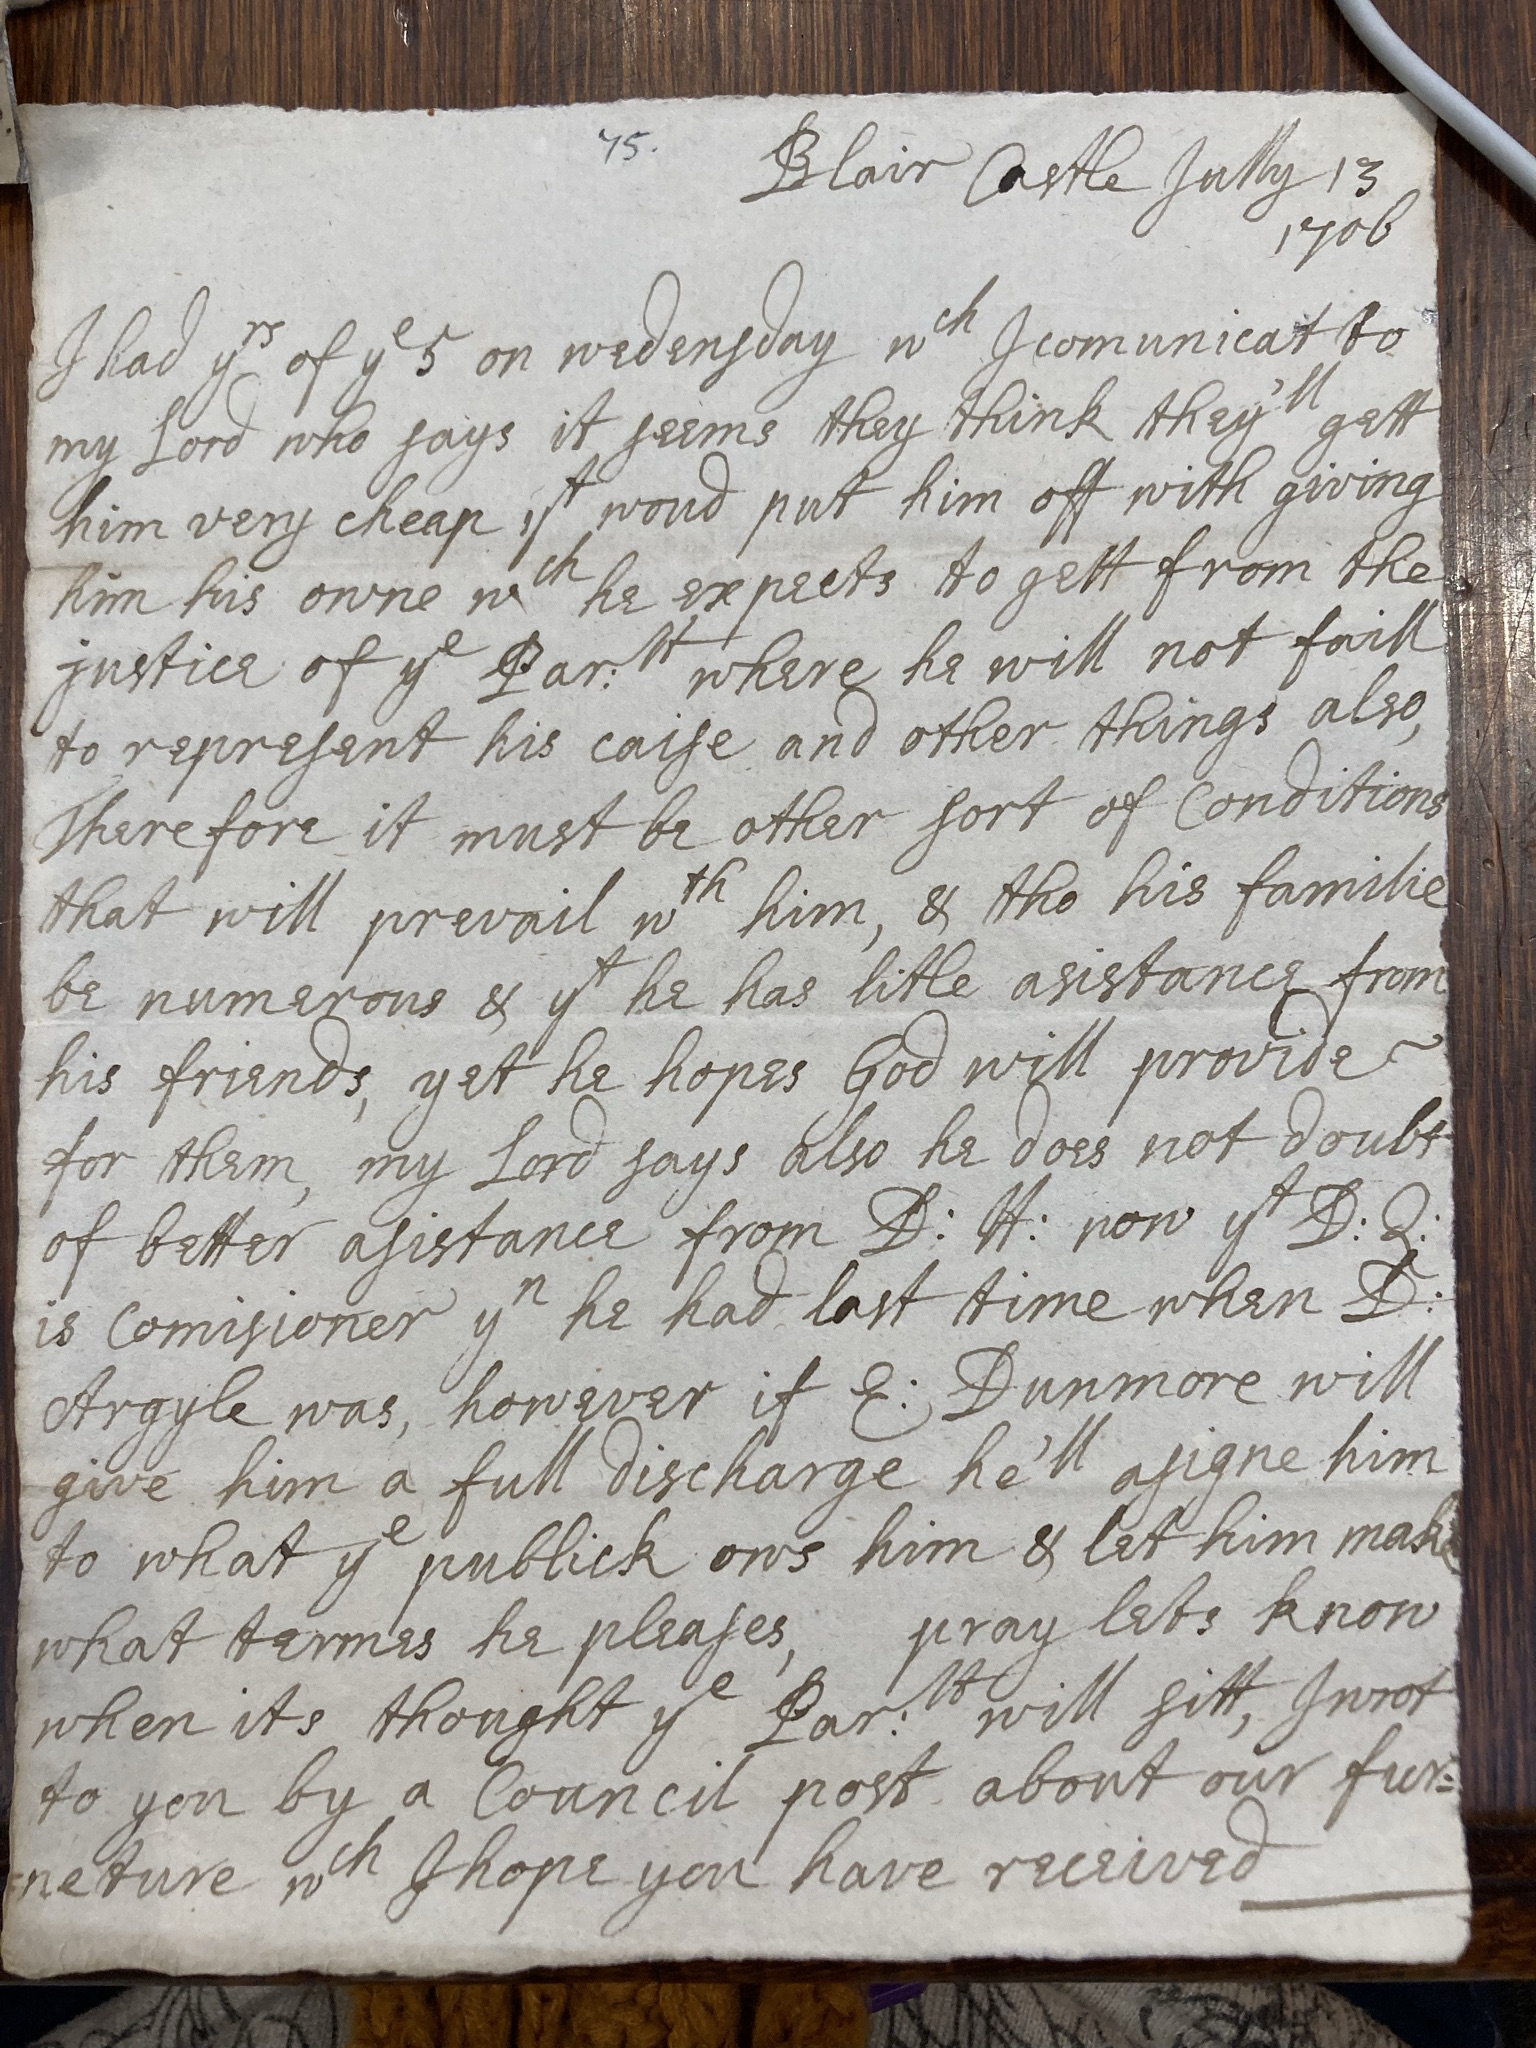 75.
Blair Castle Jully 13
1706
I had yrs of ye 5 on wedensday wch I comunicat to
my Lord who says it seems they think they'll gett
him very cheap yt woud put him off with giving
him his owne wch he expects to gett from the
justice of ye Par:lt where he will not faill
to represent his caise and other things also,
Therefore it must be other sort of Conditions
that will prevail wth him, & tho his familie
be numerous & yt he has litle asistance from
his friends, yet he hopes God will provide
for them, my Lord says also he does not doubt
of better asistance from D: H: now yt D: Q:
is Comisioner yn he had last time when D:
Argyle was, however if E: Dunmore will
give him a full discharge he'll asigne him
to what ye publick ows him & let him make
what termes he pleases, pray lets know
when its thought ye Par:lt will sitt, I wrot
to you by a Council post about our fur=
=neture wch I hope you have received